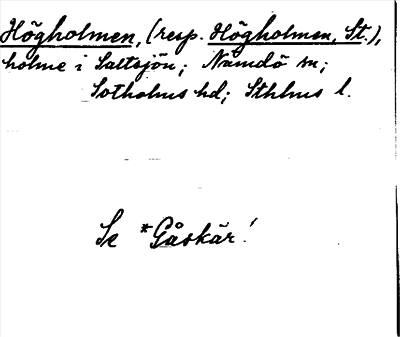 Högholmen, (resp. Högholmen, St.),
holme i Saltsjön; Nämdö sn;
Sotholms hd; Sthlms l.
Se *Gåskär!